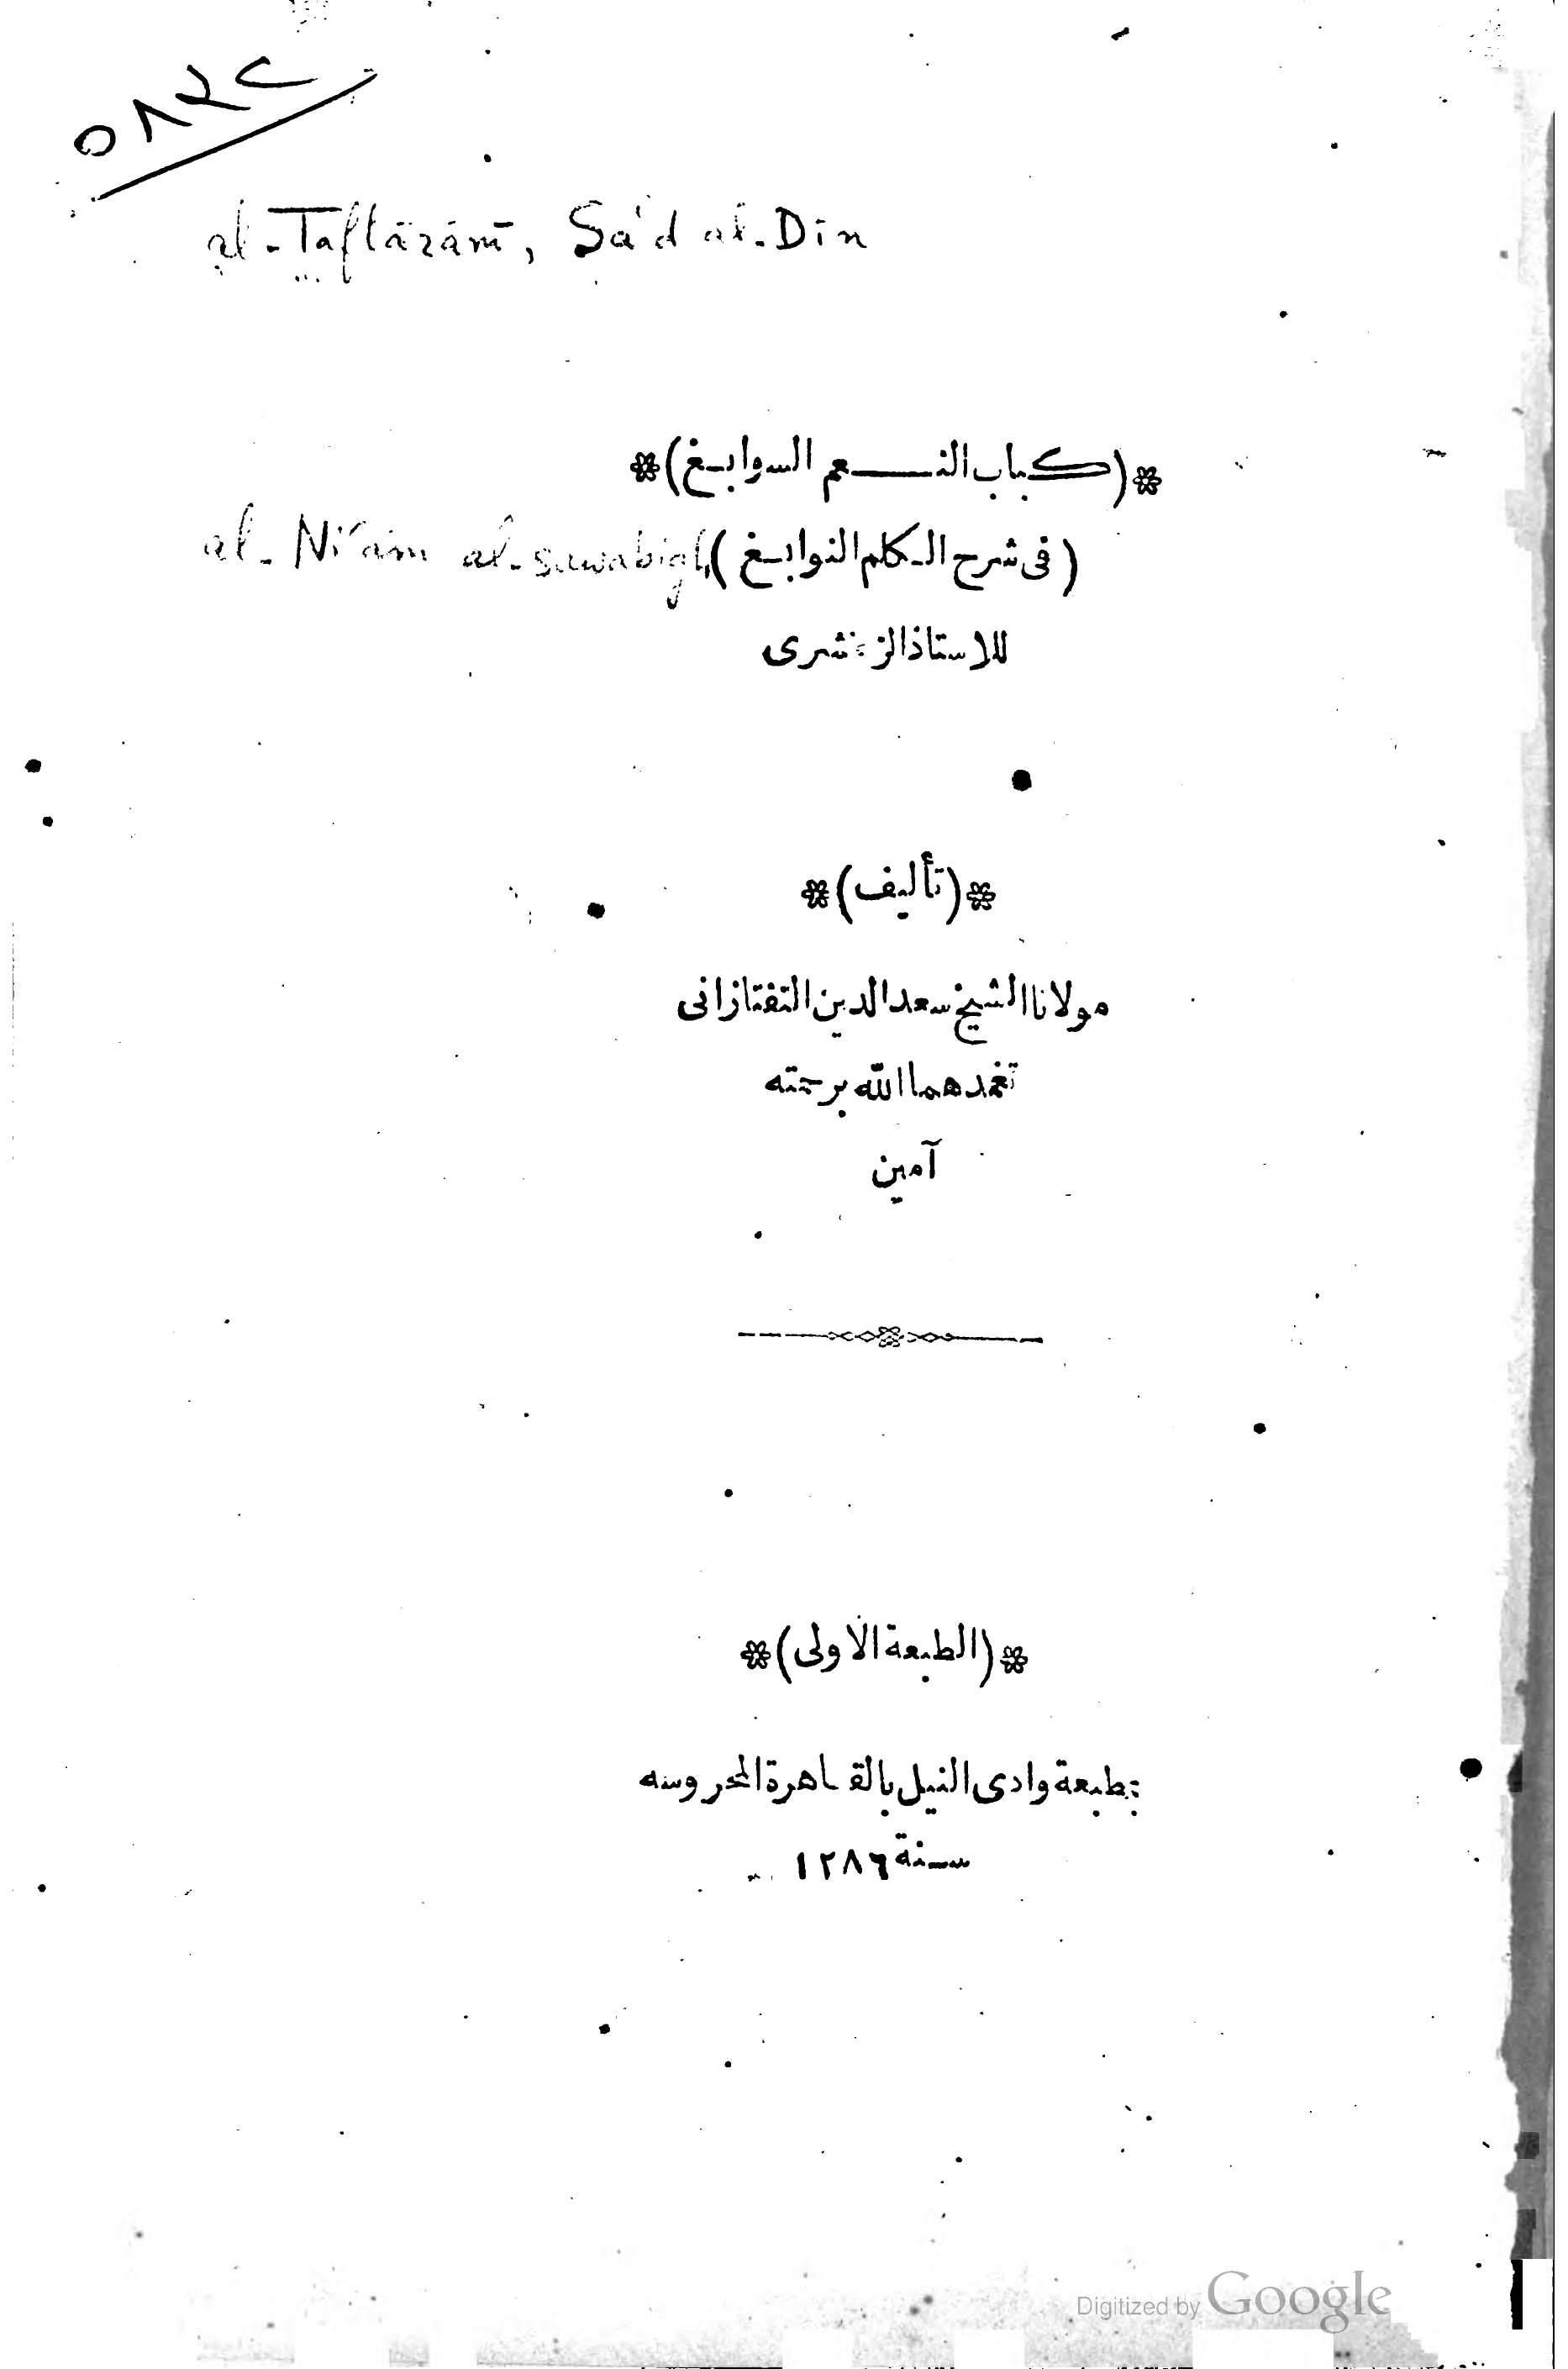 al-Taftāzānī, Sa'd al-Dīn
*(كتاب النعم السوابغ)*
(فى شرح الكلم النوابغ)
al-Ni'am al-sawabigh
للاستاذ الزمخشرى
*(تأليف)*
مولانا الشيخ سعد الدين التفتازانى
تغمدهما الله برحمته
آمين
*(الطبعة الاولى)*
بمطبعة وادى النيل بالقاهرة المحروسه
سنة ١٢٨٦
Digitized by Google